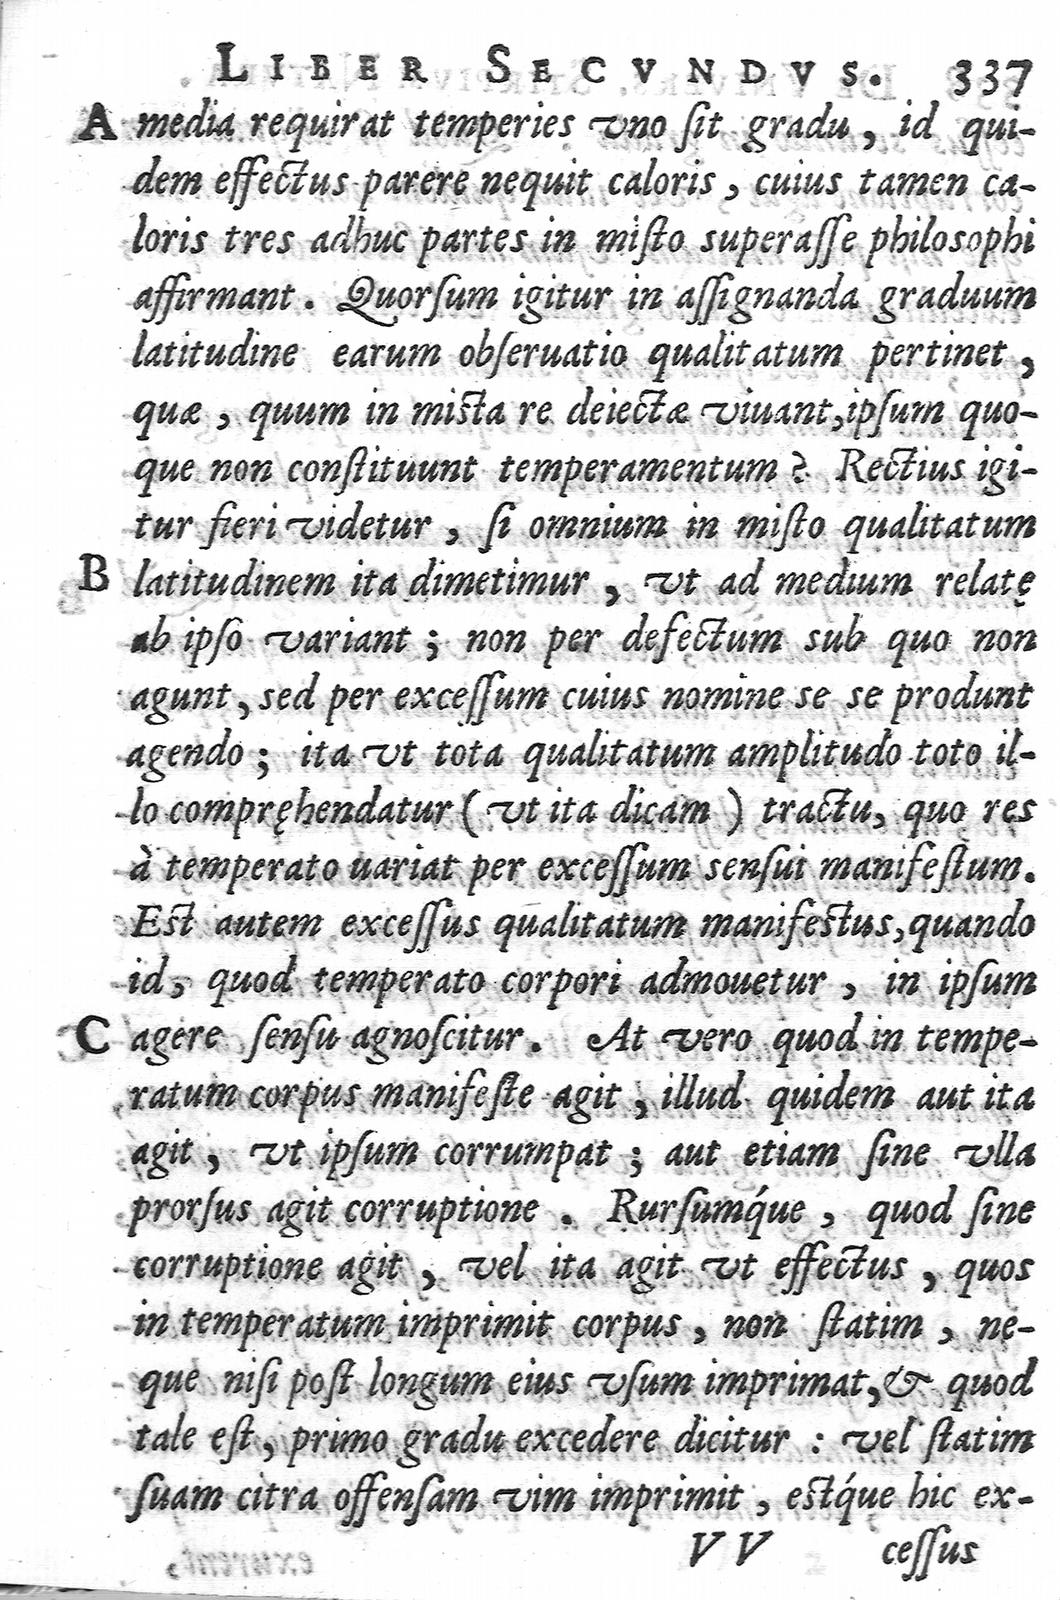 LIBER SECVNDVS. 337
A media requirat temperies vno ſit gradu, id qui-
dem effectus parere nequit caloris, cuius tamen ca-
loris tres adhuc partes in miſto superaſſe philosophi
affirmant. Quorſum igitur in aſſignanda graduum
latitudine earum obſeruatio qualitatum pertinet,
quæ, quum in mista re deiectæ viuant, ipſum quo-
que non conſtituunt temperamentum? Rectius igi-
tur fieri videtur, ſi omnium in miſto qualitatum
B latitudinem ita dimetimur, vt ad medium relatę
ab ipſo variant; non per defectum sub quo non
agunt, sed per exceſſum cuius nomine se se produnt
agendo; ita vt tota qualitatum amplitudo toto il-
lo compręhendatur (vt ita dicam) tractu, quo res
à temperato uariat per exceſſum senſui manifeſtum.
Est autem exceſſus qualitatum manifestus, quando
id, quod temperato corpori admouetur, in ipſum
C agere ſenſu agnoſcitur. At vero quod in tempe-
ratum corpus manifeſte agit, illud quidem aut ita
agit, vt ipſum corrumpat; aut etiam ſine vlla
prorſus agit corruptione. Rurſumq́ue, quod ſine
corruptione agit, vel ita agit vt effectus, quos
in temperatum imprimit corpus, non ſtatim, ne-
que niſi poſt longum eius vſum imprimat, & quod
tale eſt, primo gradu excedere dicitur: vel ſtatim
ſuam citra offenſam vim imprimit, estq́ue hic ex-
VV ceſſus